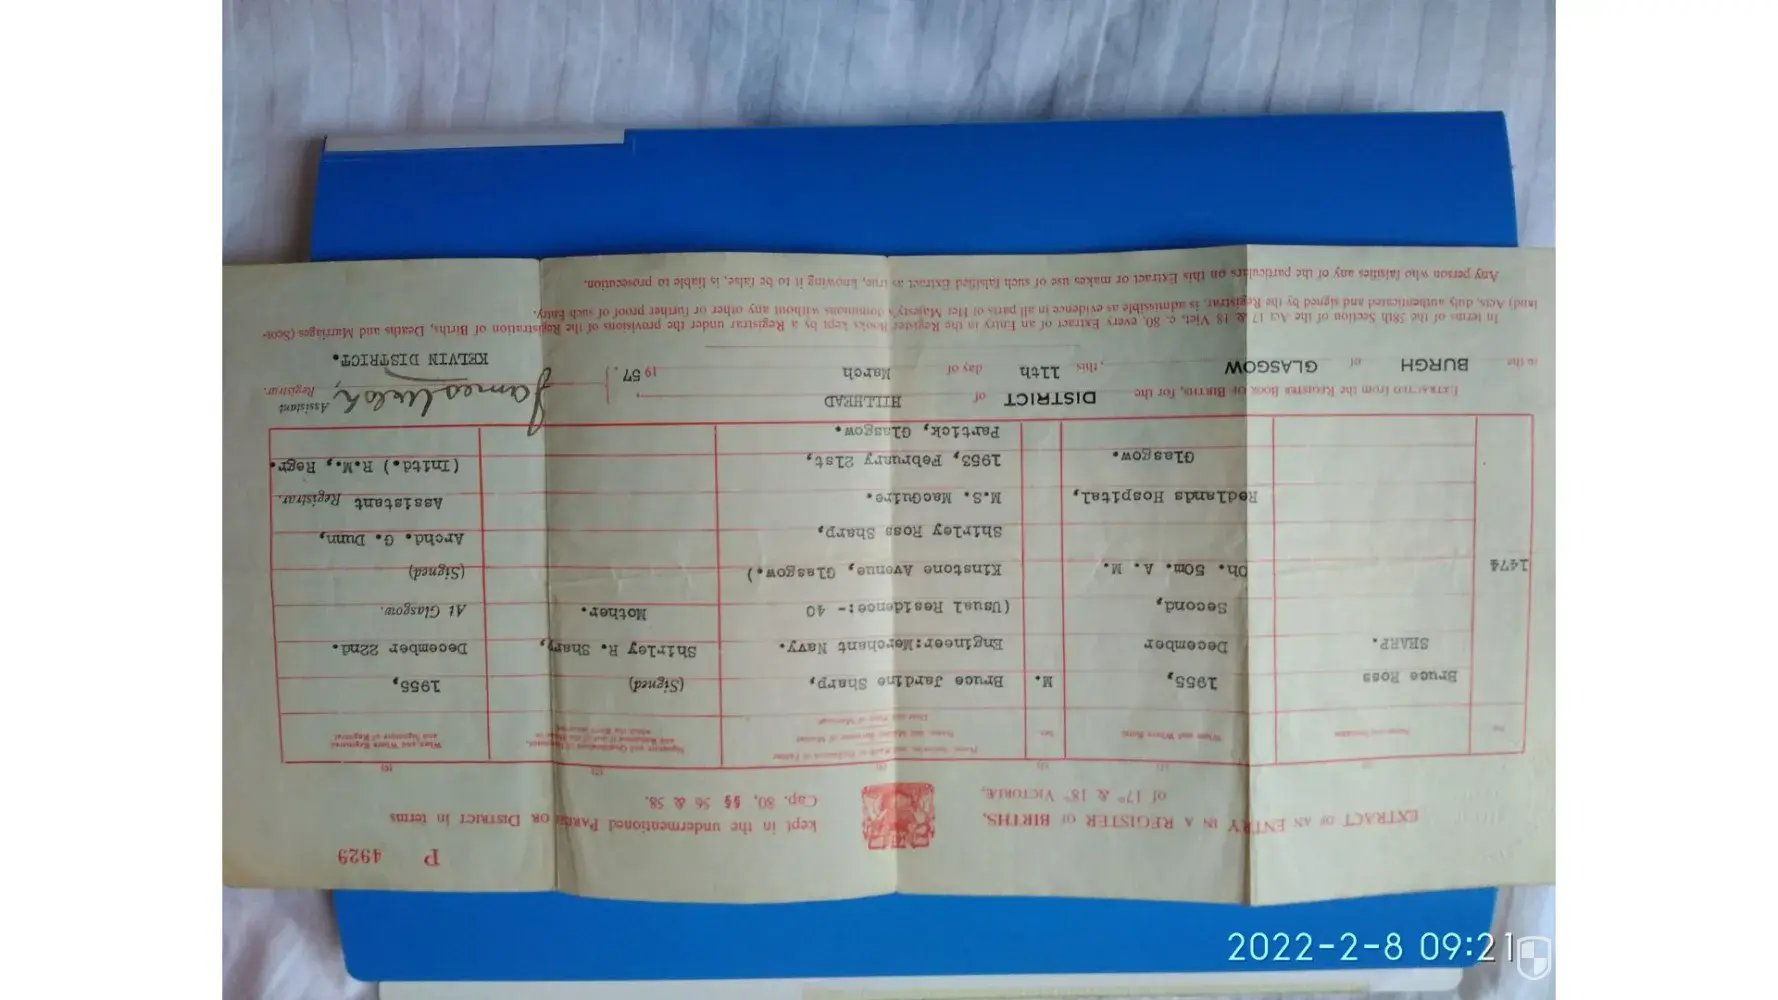 P 4929
EXTRACT OF AN ENTRY IN A REGISTER OF BIRTHS,
of 17° & 18° VICTORIÆ,
kept in the undermentioned PARISH OR DISTRICT in terms
Cap. 80, §§ 56 & 58.
(1)
(2)
(3)
(4)
(5)
(6)
No.
Name and Surname
When and Where Born
Sex
Name, Surname, and Rank or Profession of Father
Name, and Maiden Surname of Mother
Date and Place of Marriage
Signature and Qualification of Informant,
and Residence, if out of the House in
which the Birth occurred
When and Where Registered
and Signature of Registrar
1474
Bruce Ross
SHARP.
1955,
December
Second,
Oh. 50m. A. M.
Redlands Hospital,
Glasgow.
M.
Bruce Jardine Sharp,
Engineer:Merchant Navy.
(Usual Residence:- 40
Kinstone Avenue, Glasgow.)
Shirley Ross Sharp,
M.S. MacGuire.
1953, February 21st,
Partick, Glasgow.
(Signed)
Shirley R. Sharp,
Mother.
1955,
December 22nd.
At Glasgow.
(Signed)
Archd. G. Dunn,
Assistant Registrar.
(Initd.) R.M., Regr.
EXTRACTED from the REGISTER BOOK OF BIRTHS, for the DISTRICT of HILLHEAD
in the BURGH of GLASGOW, this 11th day of March 1957.
James Welsh, Assistant Registrar.
KELVIN DISTRICT.
In terms of the 58th Section of the Act 17 & 18 Vict. c. 80, every Extract of an Entry in the Register Books kept by a Registrar under the provisions of the Registration of Births, Deaths and Marriages (Scot-
land) Acts, duly authenticated and signed by the Registrar, is admissible as evidence in all parts of Her Majesty's dominions without any other or further proof of such Entry.
Any person who falsifies any of the particulars on this Extract or makes use of such falsified Extract as true, knowing it to be false, is liable to prosecution.
2022-2-8 09:21